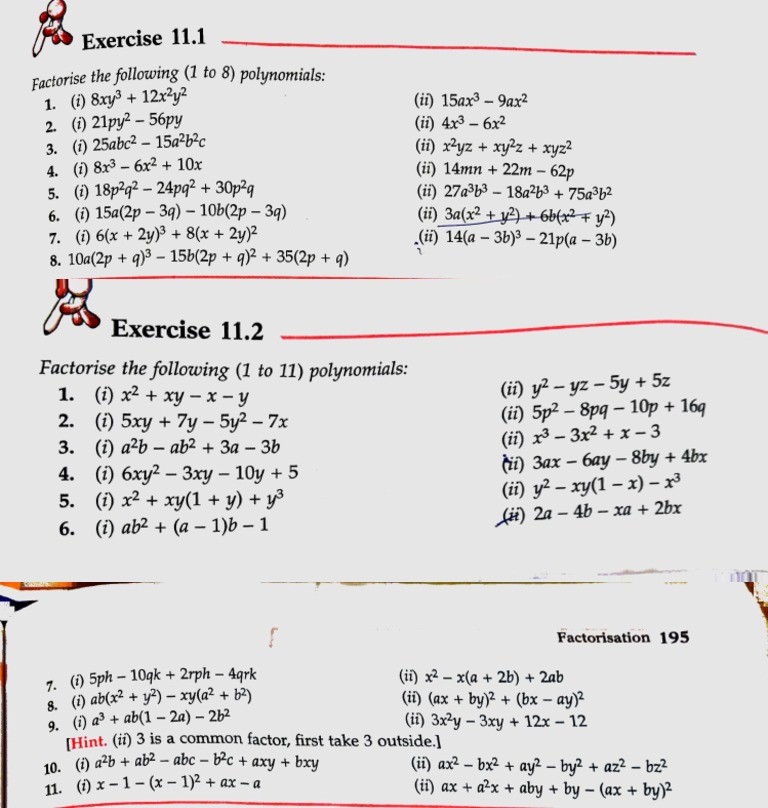 Exercise 11.1
Factorise the following (1 to 8) polynomials:
1. (i) 8xy³ + 12x²y² (ii) 15ax³ – 9ax²
2. (i) 21py² – 56py (ii) 4x³ – 6x²
3. (i) 25abc² – 15a²b²c (ii) x²yz + xy²z + xyz²
4. (i) 8x³ – 6x² + 10x (ii) 14mn + 22m – 62p
5. (i) 18p²q² – 24pq² + 30p²q (ii) 27a³b³ – 18a²b³ + 75a³b²
6. (i) 15a(2p – 3q) – 10b(2p – 3q) (ii) 3a(x² + y²) + 6b(x² + y²)
7. (i) 6(x + 2y)³ + 8(x + 2y)² (ii) 14(a – 3b)³ – 21p(a – 3b)
8. 10a(2p + q)³ – 15b(2p + q)² + 35(2p + q)
Exercise 11.2
Factorise the following (1 to 11) polynomials:
1. (i) x² + xy – x – y (ii) y² – yz – 5y + 5z
2. (i) 5xy + 7y – 5y² – 7x (ii) 5p² – 8pq – 10p + 16q
3. (i) a²b – ab² + 3a – 3b (ii) x³ – 3x² + x – 3
4. (i) 6xy² – 3xy – 10y + 5 (ii) 3ax – 6ay – 8by + 4bx
5. (i) x² + xy(1 + y) + y³ (ii) y² – xy(1 – x) – x³
6. (i) ab² + (a – 1)b – 1 (ii) 2a – 4b – xa + 2bx
Factorisation 195
7. (i) 5ph – 10qk + 2rph – 4qrk (ii) x² – x(a + 2b) + 2ab
8. (i) ab(x² + y²) – xy(a² + b²) (ii) (ax + by)² + (bx – ay)²
9. (i) a³ + ab(1 – 2a) – 2b² (ii) 3x²y – 3xy + 12x – 12
[Hint. (ii) 3 is a common factor, first take 3 outside.]
10. (i) a²b + ab² – abc – b²c + axy + bxy (ii) ax² – bx² + ay² – by² + az² – bz²
11. (i) x – 1 – (x – 1)² + ax – a (ii) ax + a²x + aby + by – (ax + by)²